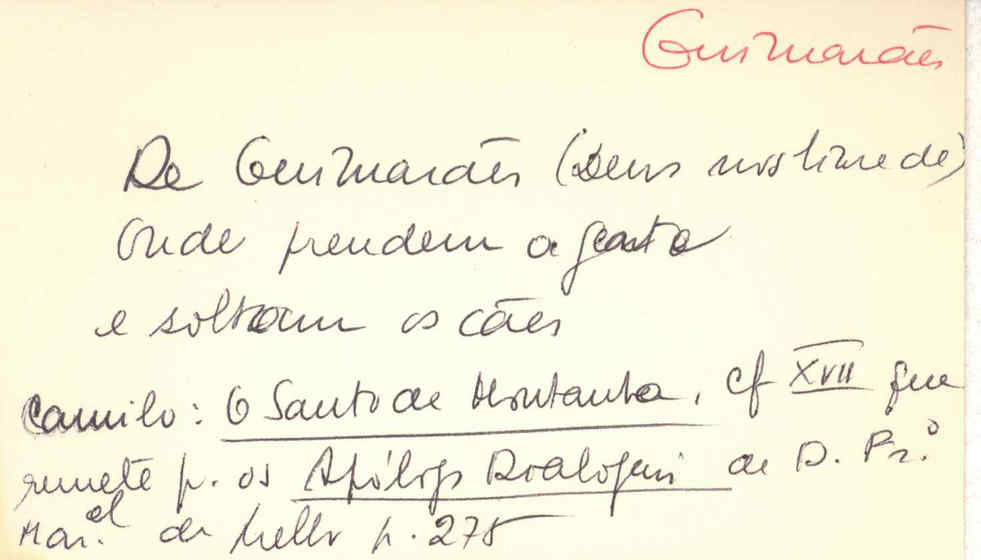 Guimarães
De Guimarães (Deus nos livre de)
Onde prendem a gente
e soltam os cães
Camilo: O Santo da Montanha, cf XVII que
remete p. os Apólogs Dialogais de D. Fr.º
Man.el de Mello p. 275